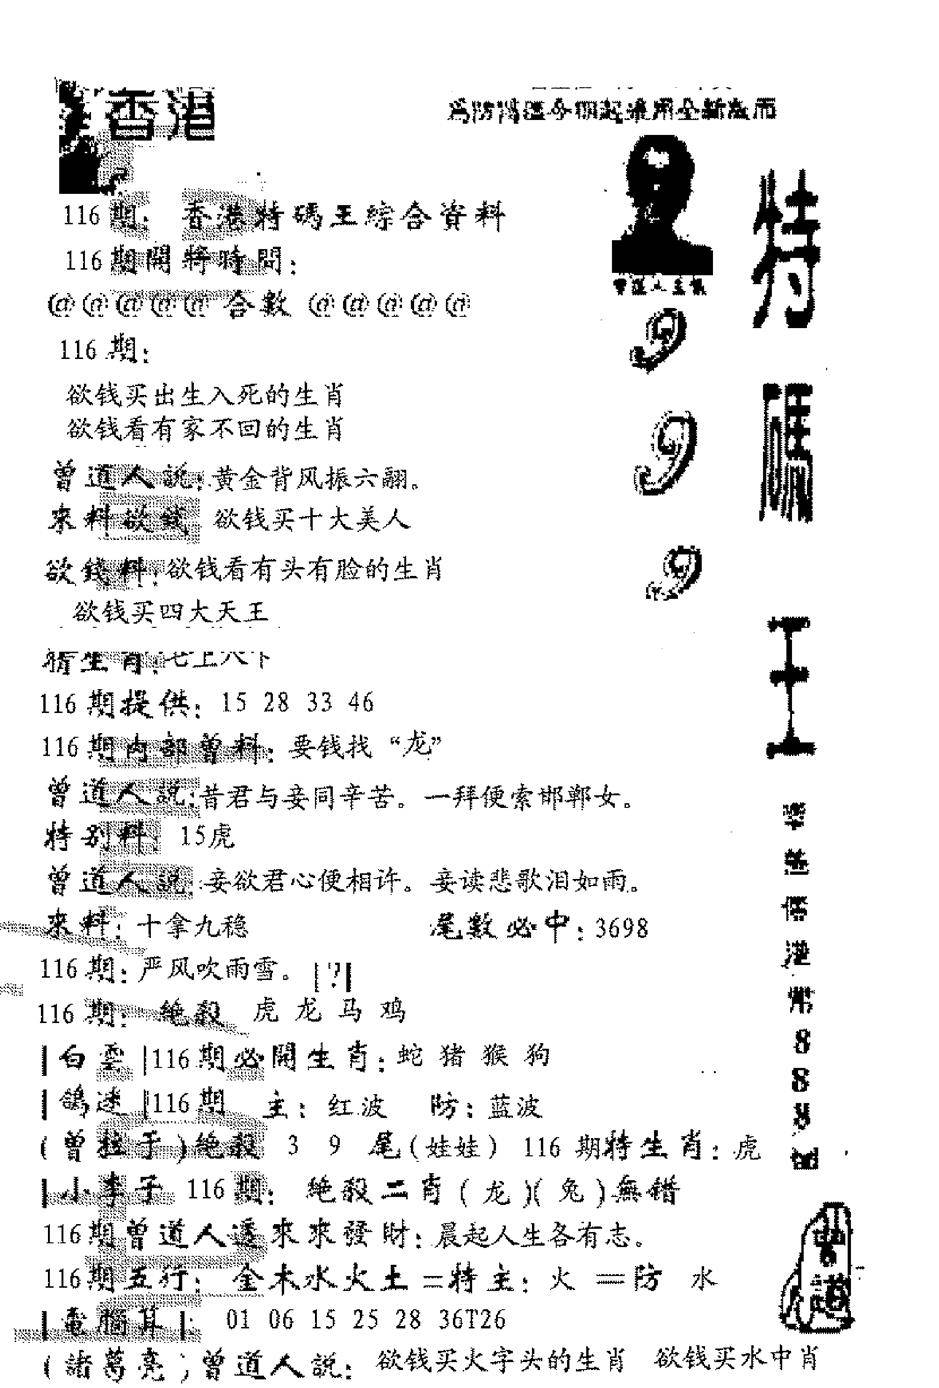 香港
為防搞混今期起采用全新版面
116期：香港特碼王綜合資料
116期開將時間：
@@@@@合數@@@@@
116期：
欲钱买出生入死的生肖
欲钱看有家不回的生肖
曾道人説：黄金背风振六翮。
來料欲錢 欲钱买十大美人
欲錢料：欲钱看有头有脸的生肖
欲钱买四大天王
特生肖：七上八下
116期提供：15 28 33 46
116期内部曾料：要钱找“龙”
曾道人説：昔君与妾同辛苦。一拜便索邯郸女。
特别料：15虎
曾道人説：妾欲君心便相许。妾读悲歌泪如雨。
來料：十拿九稳 尾数必中：3698
116期：严风吹雨雪。|?|
116期：绝殺 虎 龙 马 鸡
|白雲|116期必開生肖：蛇 猪 猴 狗
|鴿迷|116期 主：红波 防：蓝波
(曾柱于)绝殺 3 9 尾(娃娃) 116期特生肖：虎
|小李子 116期：绝殺二肖(龙)(兔)無错
116期曾道人透來來發財：晨起人生各有志。
116期五行：金木水火土=特主：火 =防 水
|電腦算|：01 06 15 25 28 36T26
(諸葛亮)曾道人説：欲钱买火字头的生肖 欲钱买水中肖
曾道人主報
9
9
9
特碼王
零售價港幣888
曾道人